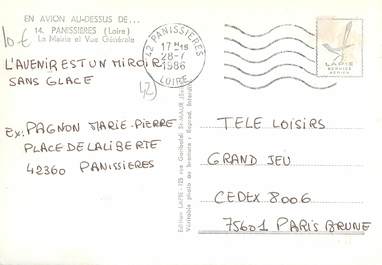 EN AVION AU-DESSUS DE...
14. PANISSIERES (Loire)
La Mairie et Vue Générale
10 €
42 PANISSIERES
17 H 15
28-7
1986
LOIRE
LAPIE
SERVICE
AERIEN
L'AVENIR EST UN MIROIR
SANS GLACE
42)
Ex: PAGNON MARIE-PIERRE
PLACE DE LA LIBERTE
42360 PANISSIERES
TELE LOISIRS
GRAND JEU
CEDEX 8006
75601 PARIS BRUNE
Edition LAPIE
Véritable photo au bromure